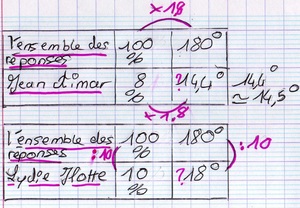 ×18
l'ensemble des réponses 100 % 180°
Jean Aimar 8 % ?14,4° 14,4°
≃ 14,5°
×1,8
l'ensemble des réponses 100 % 180°
:10 :10
Lydie Hotte 10 % ?18°